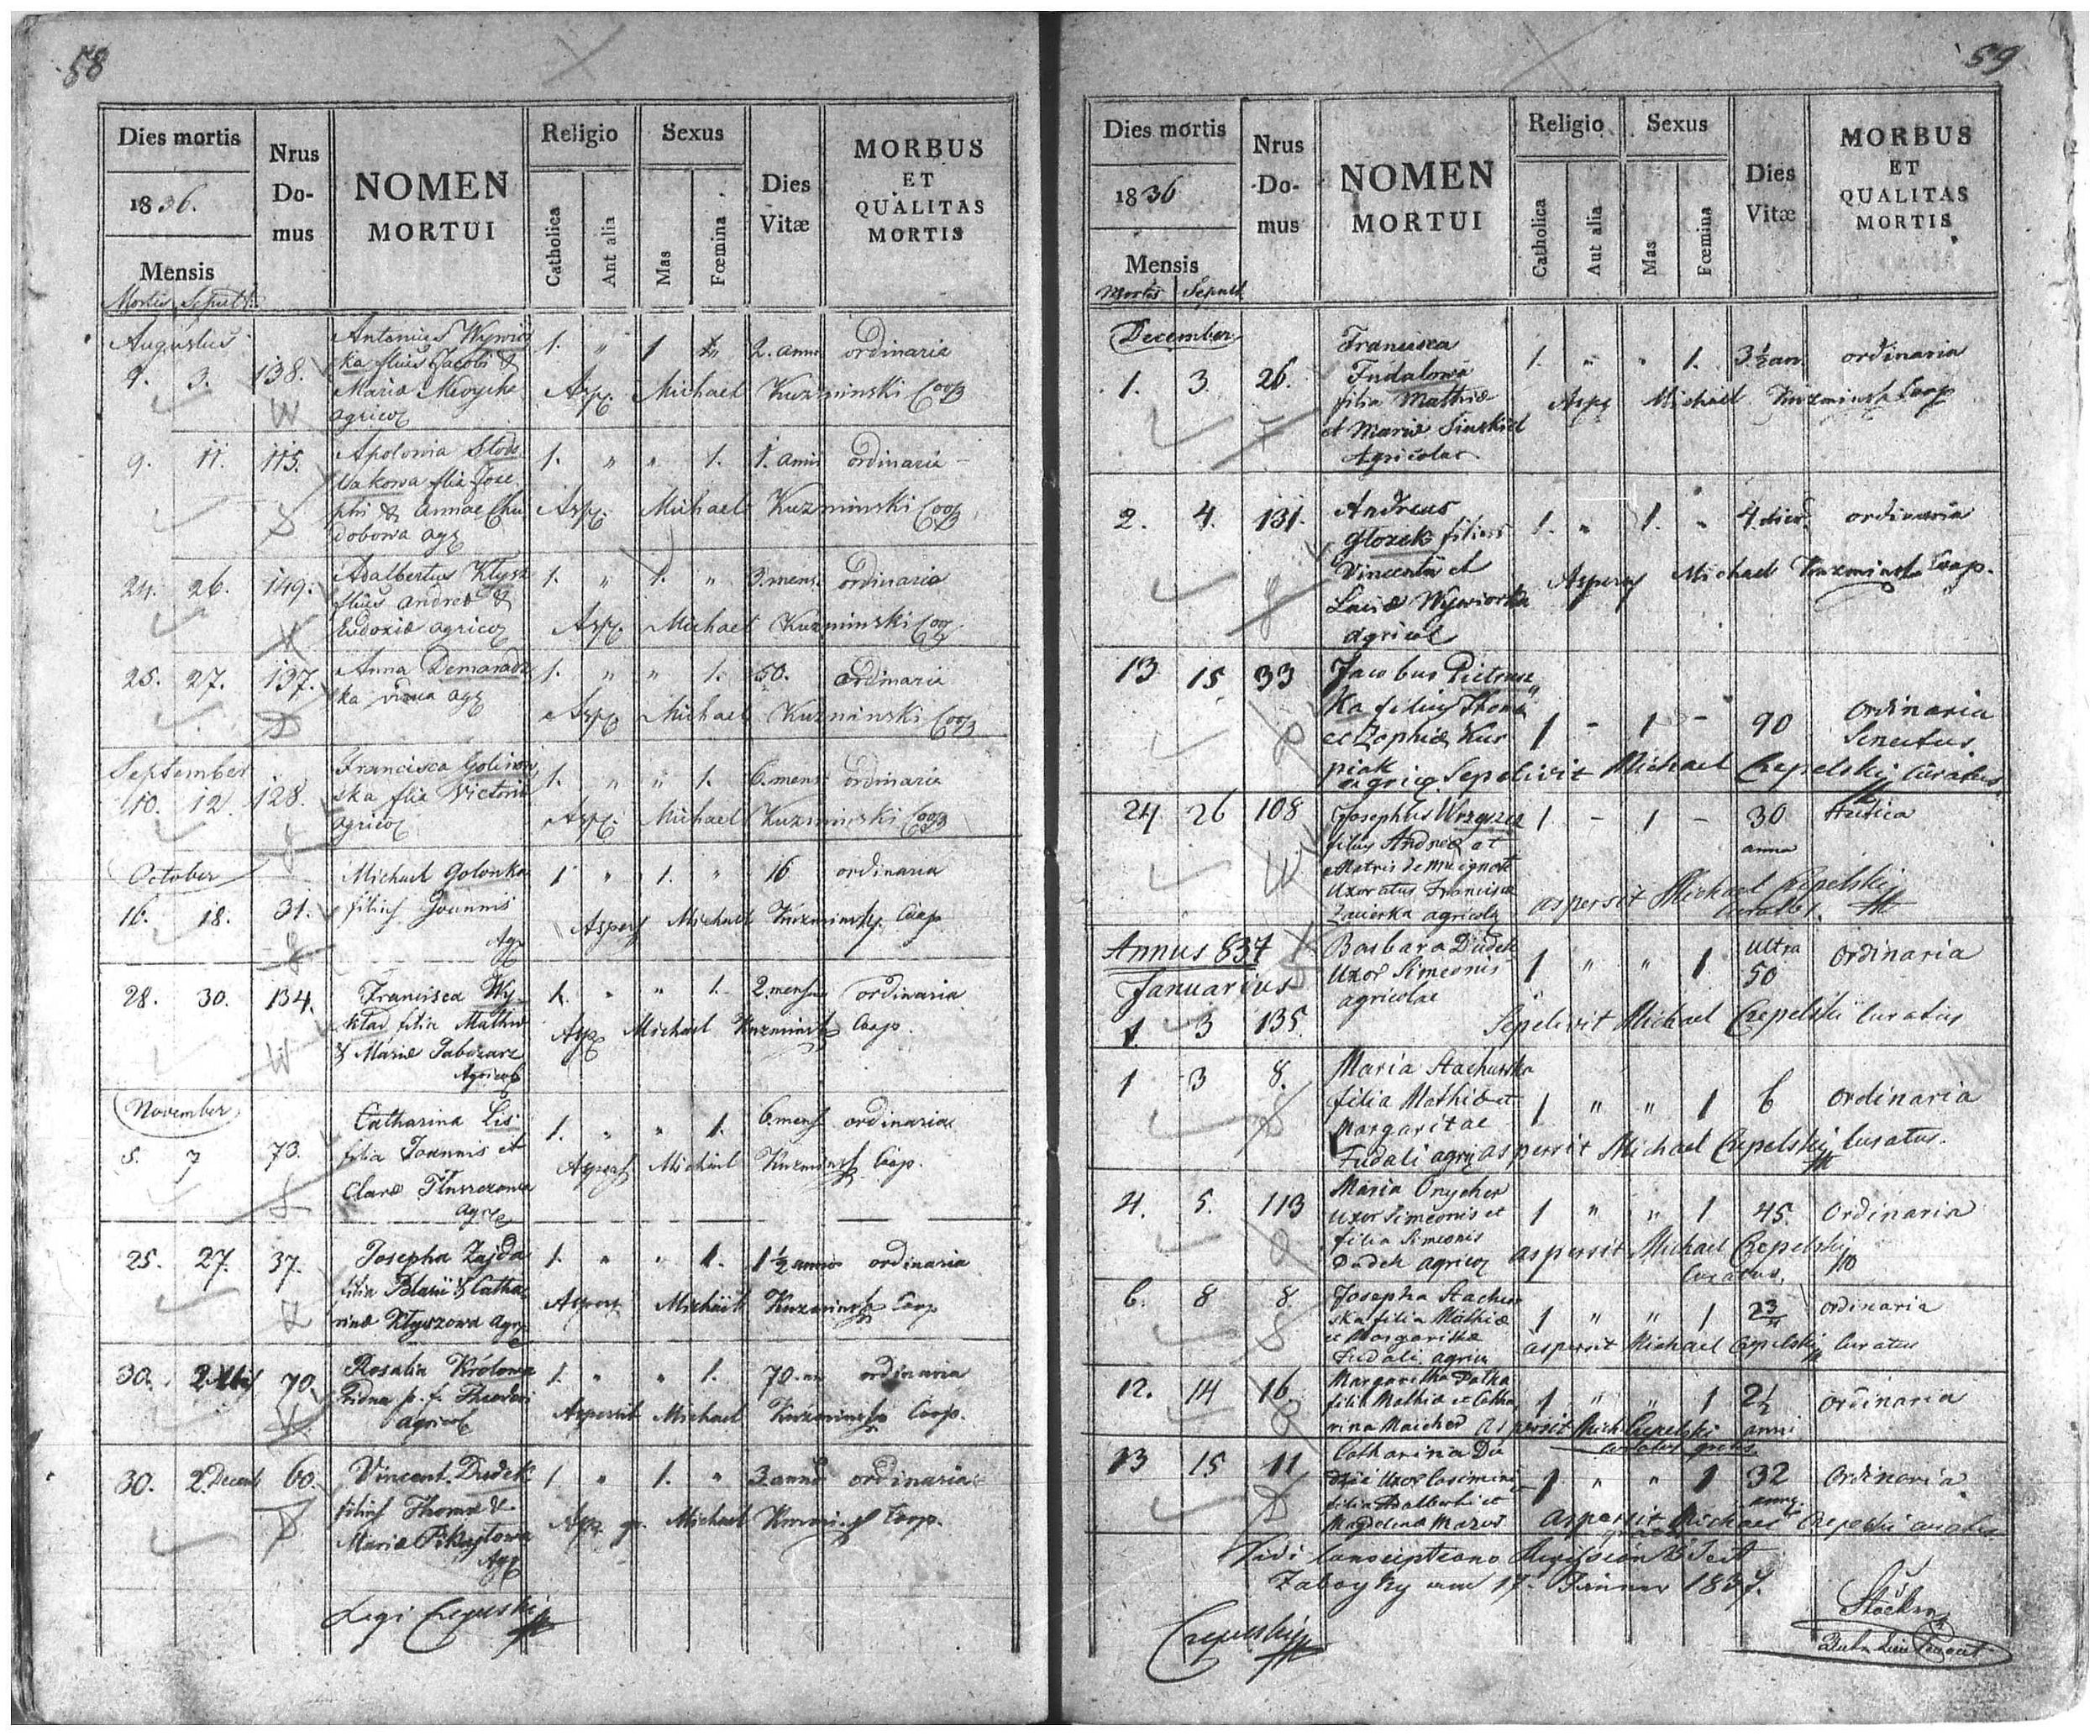 58
Dies mortis
1836.
Mensis
Mortis Sepult.
Nrus Domus
NOMEN MORTUI
Religio
Catholica
Aut alia
Sexus
Mas
Fœmina
Dies Vitæ
MORBUS ET QUALITAS MORTIS
Augustus
2. 3. 138. Antonius Wywiór 1. " 1 " 2. anni ordinaria
ka filius Jacobi &
Mariæ Asp. Michael Kuzminski Coop
agricol
9. 11. 115. Apolonia Stod 1. " " 1. 1. anni ordinaria
lakowa filia Jose
phi & Annae Chu Asp. Michael Kuzminski Coop
dobowa agr
24. 26. 149. Adalbertus Kłysz 1. " 1. " 3. mens. ordinaria
filius Andreæ &
Eudoxiæ agricol Asp. Michael Kuzminski Coop.
25. 27. 137. Anna Demaradz 1. " " 1. 50. ordinaria
ka vidua agr
Asp. Michael Kuzminski Coop
September
10. 12. 128. Francisca Goliniow 1. " " 1. 6. mens ordinaria
ska filia Victoria
agricol Asp. Michael Kuzminski Coop
October
16. 18. 31. Michael Golonka 1 " 1. " 16 ordinaria
filius Joannis
Agr Aspers Michael Kuzminski Coop
28. 30. 134. Francisca Wy 1. " " 1. 2. mens ordinaria
kład filia Mathiæ
& Mariæ Asp Michael Kuzminski Coop.
Agricol
November
5. 7 73. Catharina Lis 1. " " 1. 6 mens ordinaria
filia Joannis et
Claræ Tłuszczowa Aspers Michael Kuzminski Coop.
agric
25. 27. 37. Josepha Zajda 1. " " 1. 1 ½ annor ordinaria
filia Blasii & Catha
rinæ Kłyszowa Agr Aspers Michael Kuzminski Coop
30. 70. Rosalia Królowa 1. " " 1. 70. an ordinaria
Vidua p. f. Theodori
Agricol Aspersit Michael Kuzminski Coop.
30. 2. Decemb 60. Vincent. Dudek 1 " 1. " 3. anno ordinaria
filius Thomæ &
Mariæ Asp. gr. Michael Coop.
Agr
Legi Czepelski
59
Dies mortis
1836
Mensis
Mortis Sepult
Nrus Domus
NOMEN MORTUI
Religio
Catholica
Aut alia
Sexus
Mas
Fœmina
Dies Vitæ
MORBUS ET QUALITAS MORTIS
December
1. 3. 26. Francisca 1. " " 1. 3 ½ an. ordinaria
Fudalowa
filia Mathiæ Asps Michael Kuzminski Coop
et Mariæ
Agricolar
2. 4. 131. Andreas 1. " 1. " 4 dier. ordinaria
Głozek filius
Vincentii et
Luciæ Wywiorka Aspers Michael Kuzminski Coop.
agricol
13 15 33 Jacobus Pietrusz
ka filius Thomæ 1 - 1 - 90 Ordinaria
et Zophiæ Kur Senectus.
piak
agricol Sepelivit Michael Czepelski Curatus
24 26 108 Josephus Wrzyszcz 1 - 1 - 30 anno
filius Andreæ et
Matris de me ignota
Uxoratus Franciscæ
agricola aspersit Michael Czepelski
Curatus.
Annus 837
Januarius
1. 3 135. Barbara Dudek 1 " " 1 ultra 50 Ordinaria
Uxor Simeonis
agricolae
Sepelivit Michael Czepelski Curatus
1 3 8. Maria Stachurska
filia Mathiæ et 1 " " 1 6 Ordinaria
Margaritae
Fudali agric aspersit Michael Czepelski Curatus.
4. 5. 113 Maria Onycher
Uxor Simeonis et 1 " " 1 45 Ordinaria
filia Simeonis
Dudek agricol aspersit Michael Czepelski
Curatus,
6. 8 8 Josepha Stachur
ska filia Mathiæ 1 " " 1 ordinaria
et Margarithæ
Fudali agric aspersit Michael Czepelski Curatus
12. 14 16 Margaritha
filia Mathiæ et Catha 1 " " 1 2½ anni Ordinaria
rina aspersit Mich Czepelski
curatus gratis
13 15 11 Catharina
Uxor Casimiri 1 " " 1 32 Ordinaria.
filia Adalberti et
Magdelenæ Mazur aspersit Michael Czepelski curatus
gratis
17. Jänner 1837.
Czepelski